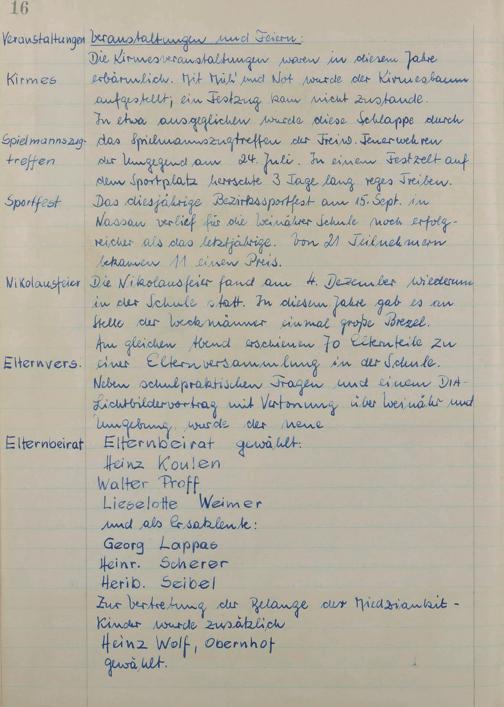 16
Veranstaltungen Veranstaltungen und Feiern:
Die Kirmesveranstaltungen waren in diesem Jahre
Kirmes erbärmlich. Mit Müh' und Not wurde der Kirmesbaum
aufgestellt; ein Festzug kam nicht zustande.
In etwa ausgeglichen wurde diese Schlappe durch
Spielmannszug- das Spielmannszugtreffen der Freiw. Feuerwehren
treffen der Umgegend am 24. Juli. In einem Festzelt auf
dem Sportplatz herrschte 3 Tage lang reges Treiben.
Sportfest Das diesjährige Bezirkssportfest am 15. Sept. in
Nassau verlief für die Weinährer Schule noch erfolg-
reicher als das letztjährige. Von 21 Teilnehmern
bekamen 11 einen Preis.
Nikolausfeier Die Nikolausfeier fand am 4. Dezember wiederum
in der Schule statt. In diesem Jahre gab es an
Stelle der Weckmänner einmal große Brezel.
Am gleichen Abend erschienen 70 Elternteile zu
Elternvers. einer Elternversammlung in der Schule.
Neben schulpraktischen Fragen und einem DIA-
Lichtbildervortrag mit Vertonung über Weinähr und
Umgebung wurde der neue
Elternbeirat Elternbeirat gewählt:
Heinz Koulen
Walter Proff
Lieselotte Weimer
und als Ersatzleute:
Georg Lappas
Heinr. Scherer
Herib. Seibel
Zur Vertretung der Belange der
Kinder wurde zusätzlich
Heinz Wolf, Obernhof
gewählt.